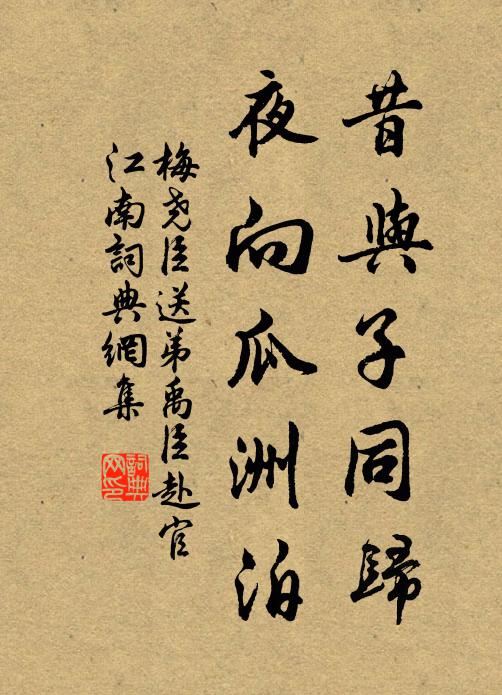 昔與子同歸
夜向瓜洲泊
梅堯臣送弟禹臣赴官
江南詞典網集
詞典
网印